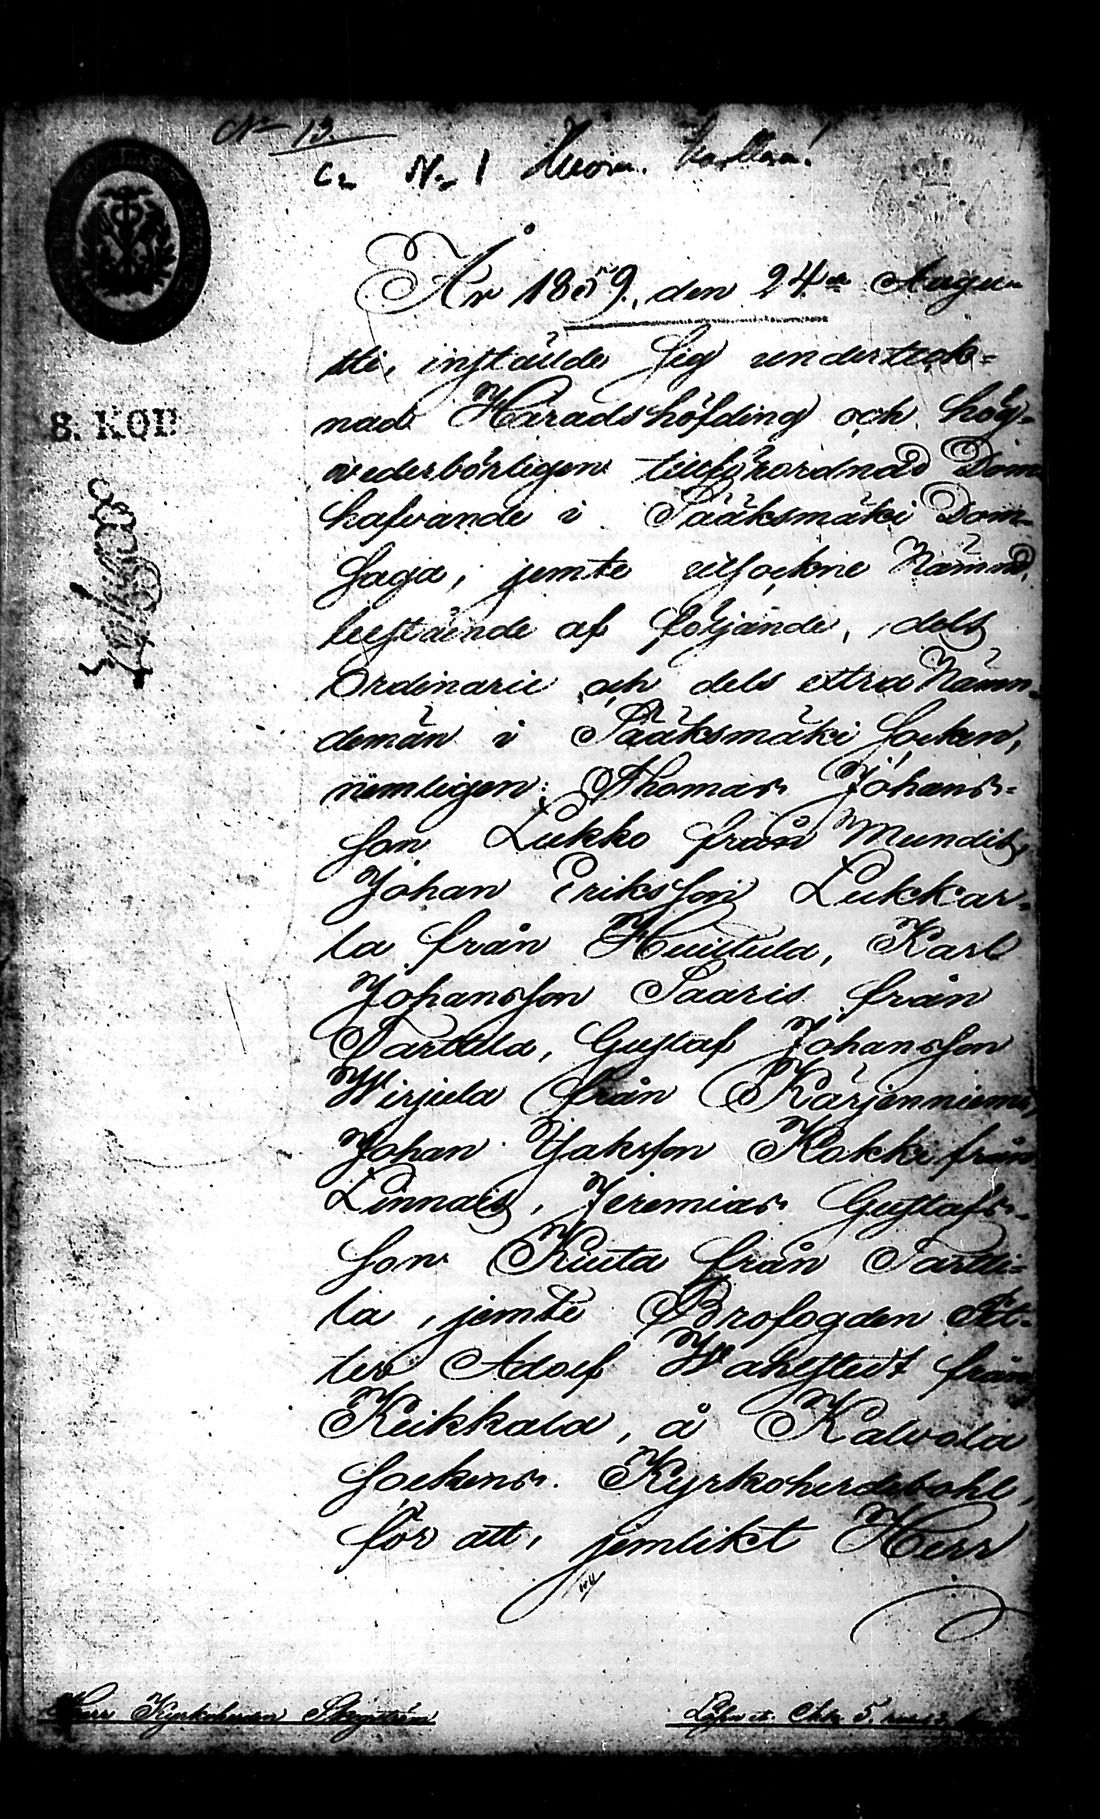 No 13
C. No 1
År 1859, den 24de Augu-
sti, instälde sig underteck-
nad Häradshöfding och hög-
vederbörligen tillförordnad Dom-
hafvande i Sääksmäki Dom-
saga, jemte utsockne Nämnd,
bestående af följande, dels
Ordinarie och dels extra Nämn-
demän i Sääksmäki Socken,
nemligen: Thomas Johans-
son Lukko från Mundis,
Johan Eriksson Lukkar-
la från Huittula, Karl
Johansson Saaris från
Tarttila, Gustaf Johansson
Wirjula från Kärjenniemi,
Johan Jaksson Kokki från
Linnais, Jeremias Gustafs-
son Kiuta från Tartti-
la, jemte Brofogden Pet-
ter Adolf Wahlstedt från
Keikkala, å Kalvola
Sockens Kyrkoherdebohl,
för att, jemlikt Herr
Herr Kyrkoherden
Lösen